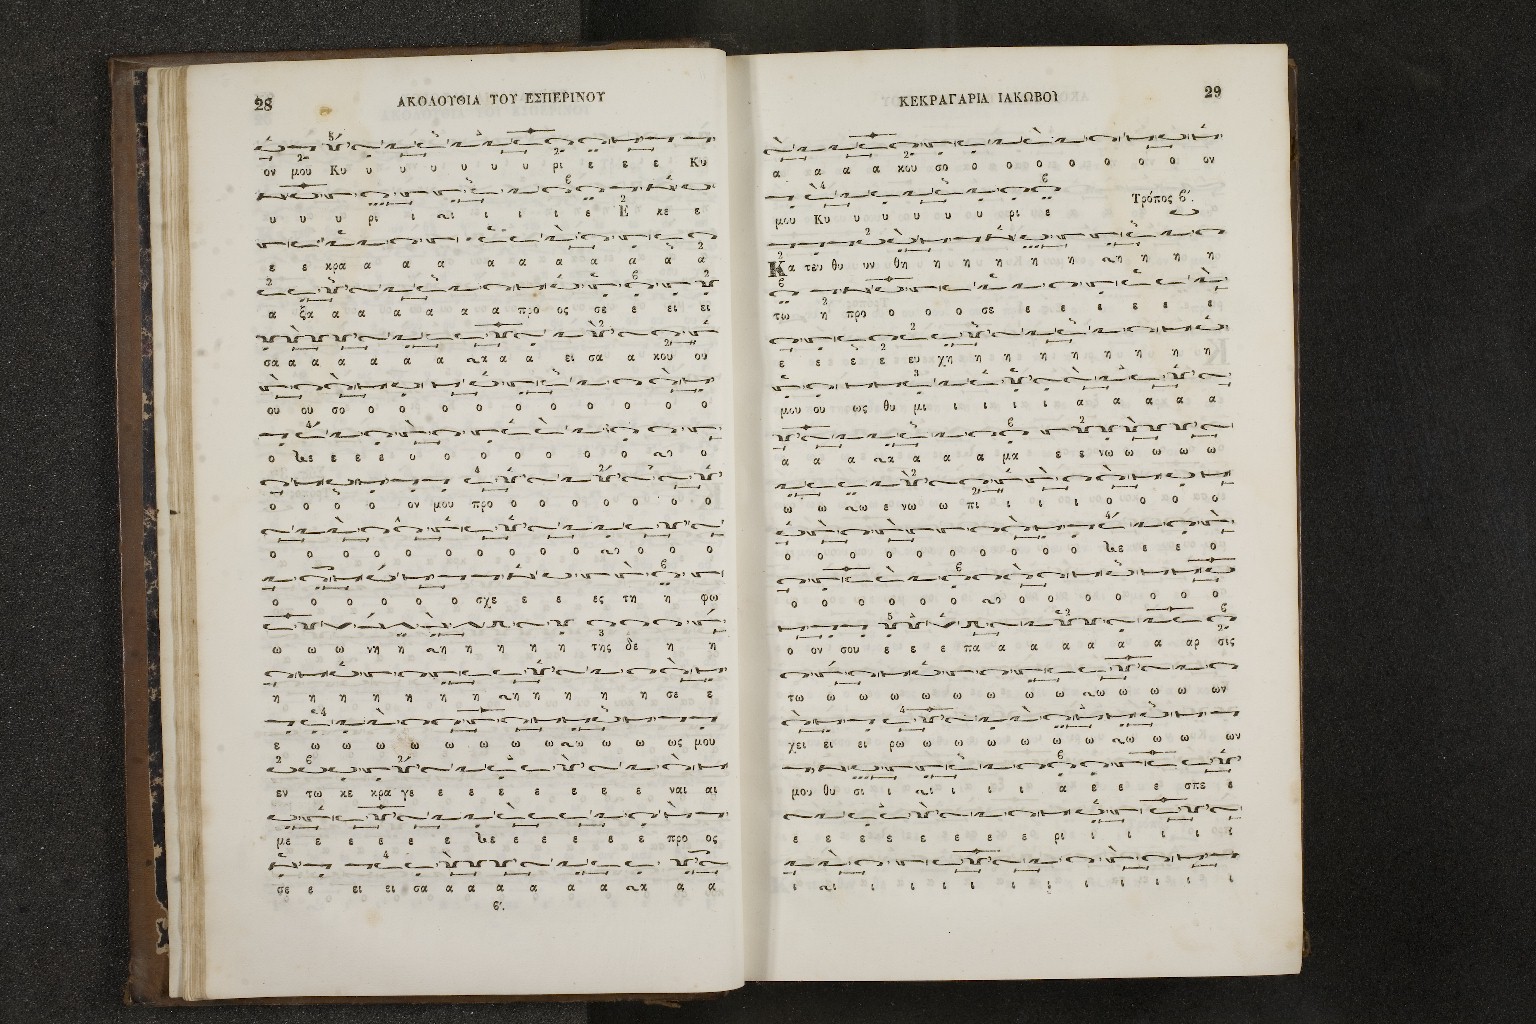 28 ΑΚΟΛΟΥΘΙΑ ΤΟΥ ΕΣΠΕΡΙΝΟΥ
ον μου Κυ υ υ υ υ υ υ ρι ε ε ε Κυ
υ υ υ ρι ι ι ι ι ι ε Ε κε ε
ε ε κρα α α α α α α α α α α
α ξα α α α α α α προ ος σε ε ει ει
σα α α α α α α α α ει σα α κου ου
ου ου σο ο ο ο ο ο ο ο ο ο ο
ο ε ε ε ε ο ο ο ο ο ο ο
ο ο ο ο ον μου προ ο ο ο ο ο ο ο
ο ο ο ο ο ο ο ο ο ο ο ο ο
ο ο ο ο ο ο σχε ε ε ες τη η φω
ω ω ω νη η η η η η η της δε η η
η η η η η η η η η η η η σε ε
ε ω ω ω ω ω ω ω ω ω ω ω ως μου
εν τω κε κρα γε ε ε ε ε ε ε ε ναι αι
με ε ε ε ε ε ε ε ε ε ε ε προ ος
σε ε ει ει σα α α α α α α α α α α
6΄.
ΚΕΚΡΑΓΑΡΙΑ ΙΑΚΩΒΟΥ 29
α α α α κου σο ο ο ο ο ο ο ο ον
μου Κυ υ υ υ υ υ ρι ε Τρόπος 6΄.
Κα τευ θυ υν θη η η η η η η η η η
τω η προ ο ο ο σε ε ε ε ε ε ε
ε ε ε ε ευ χη η η η η η η η η
μου ου ως θυ μι ι ι ι ι α α α α α
α α α α α α α μα ε ε νω ω ω ω ω
ω ω ω ε νω ω πι ι ι ι ο ο ο ο
ο ο ο ο ο ο ο ο ο ε ε ε ο
ο ο ο ο ο ο ο ο ο ο ο ο ο
ο ον σου ε ε ε πα α α α α α α αρ σις
τω ω ω ω ω ω ω ω ω ω ω ω ω ων
χει ει ει ρω ω ω ω ω ω ω ω ω ω ων
μου θυ σι ι ι ι ι ι α ε ε ε σπε ε
ε ε ε ε ε ε ε ε ρι ι ι ι ι ι
ι ι ι ι ι ι ι ι ι ι ι ι ι